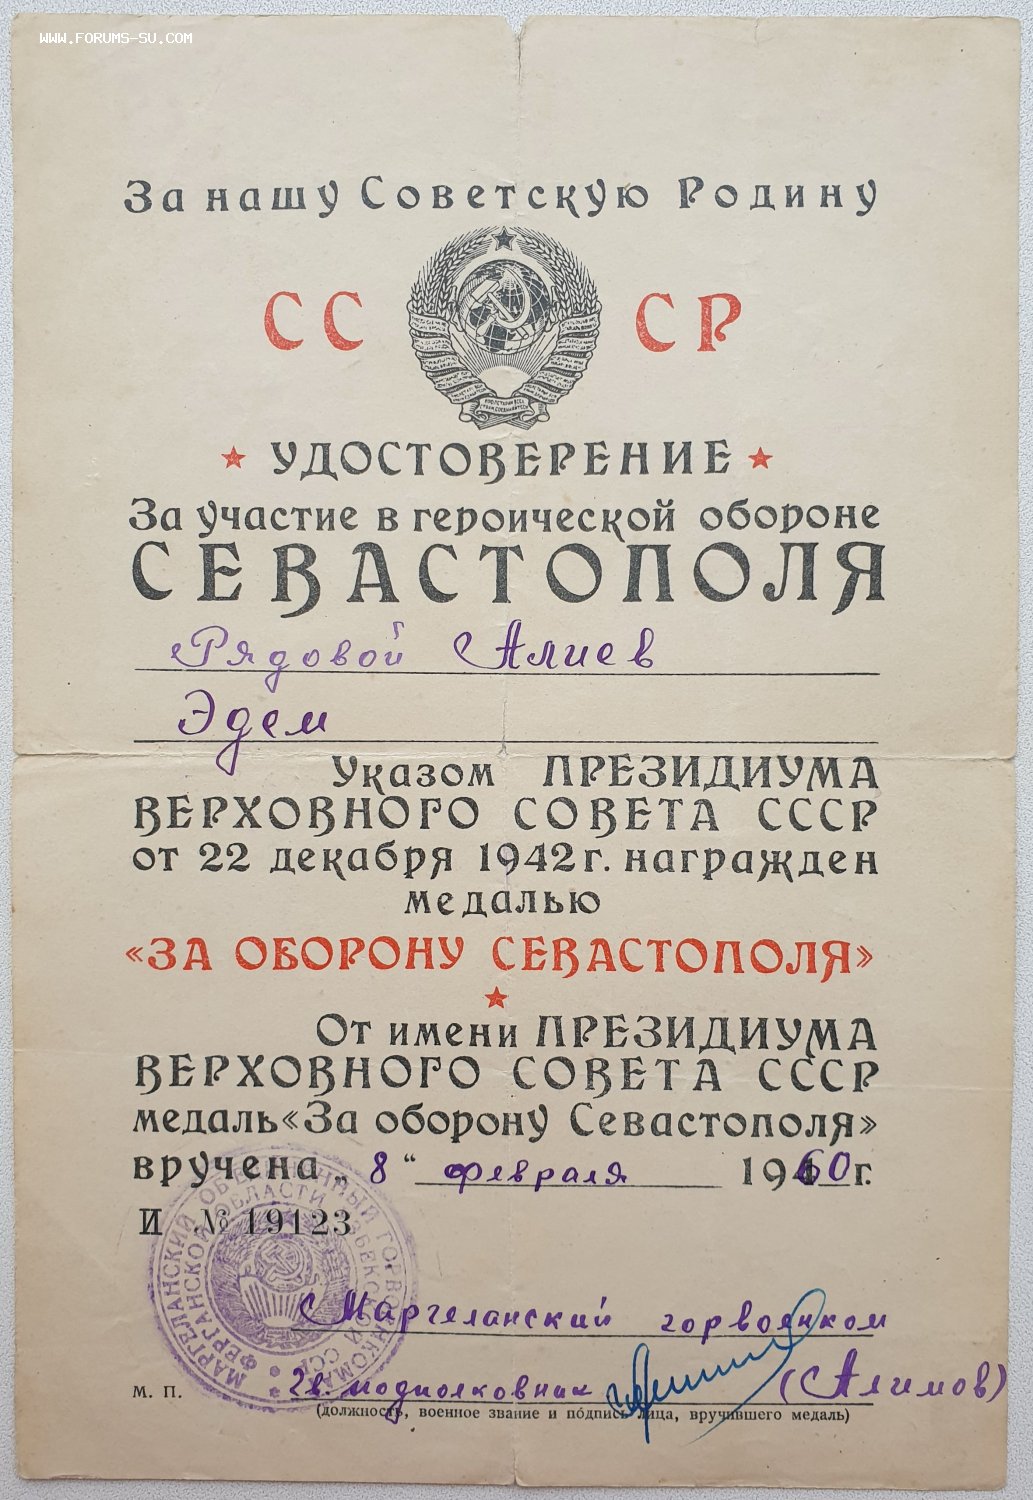 WWW.FORUMS-SU.COM
За нашу Советскую Родину
СС СР
УДОСТОВЕРЕНИЕ
За участие в героической обороне
СЕВАСТОПОЛЯ
Рядовой Алиев
Эдем
Указом ПРЕЗИДИУМА
ВЕРХОВНОГО СОВЕТА СССР
от 22 декабря 1942 г. награжден
медалью
«ЗА ОБОРОНУ СЕВАСТОПОЛЯ»
От имени ПРЕЗИДИУМА
ВЕРХОВНОГО СОВЕТА СССР
медаль «За оборону Севастополя»
вручена „8“ февраля 1960 г.
И № 19123
МАРГЕЛАНСКИЙ ОБЪЕДИНЕННЫЙ ГОРВОЕНКОМАТ
ФЕРГАНСКОЙ ОБЛАСТИ УЗБЕКСКОЙ ССР
Маргеланский горвоенком
гв. подполковник (Алимов)
М. П.
(должность, военное звание и подпись лица, вручившего медаль)